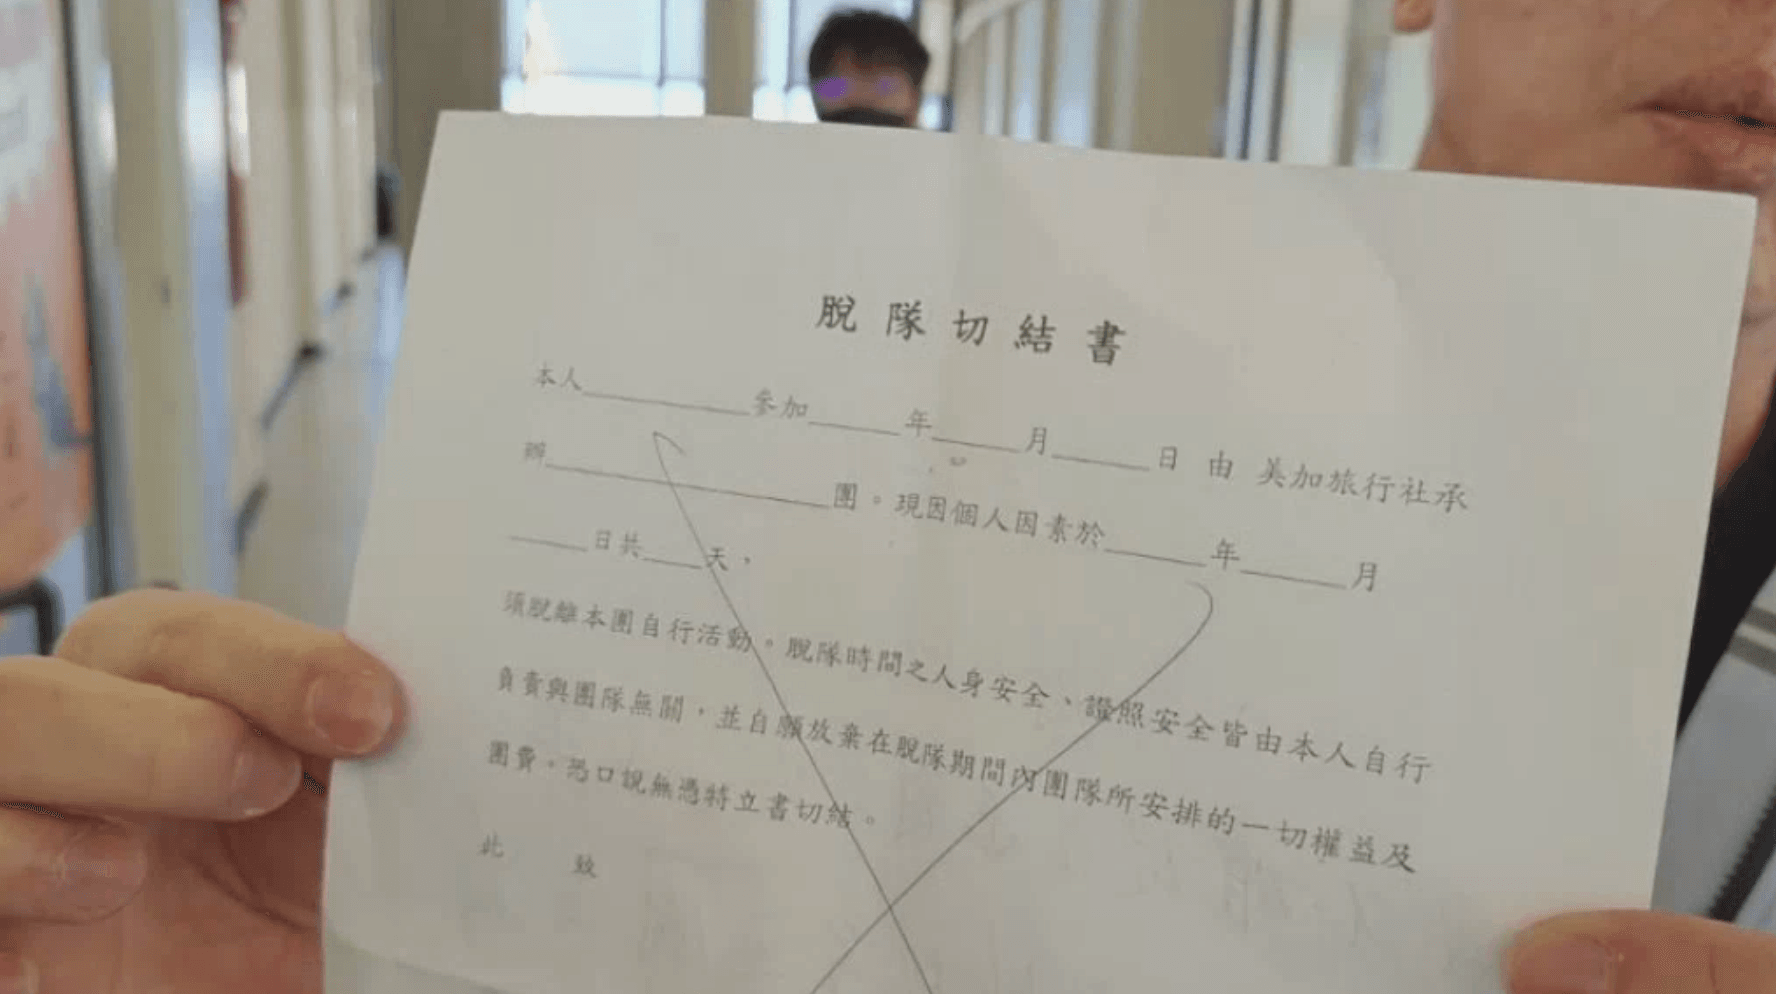 脫隊切結書
本人________參加____年____月____日 由 美加旅行社承
辦____________團。現因個人因素於____年____月
____日共___天,
須脫離本團自行活動。脫隊時間之人身安全、證照安全皆由本人自行
負責與團隊無關,並自願放棄在脫隊期間內團隊所安排的一切權益及
團費。恐口說無憑特立書切結。
此 致